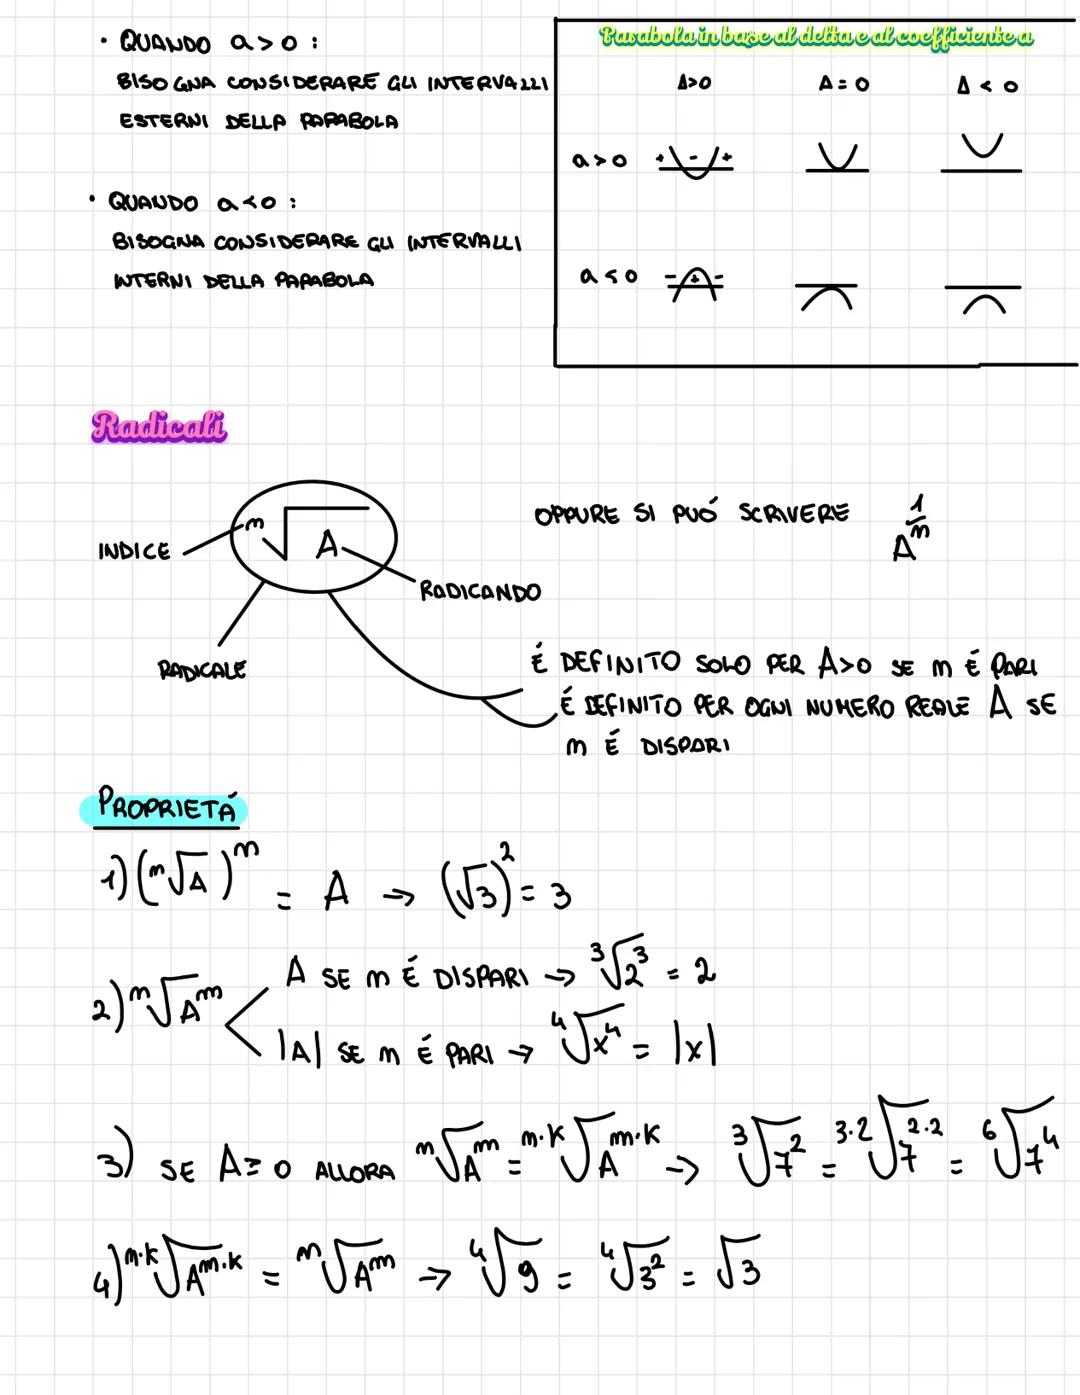 • QUANDO a>0 :
BISOGNA CONSIDERARE GLI INTERVALLI
ESTERNI DELLA PARABOLA
• QUANDO a<0 :
BISOGNA CONSIDERARE GLI INTERVALLI
INTERNI DELLA PARABOLA
Parabola in base al delta e al coefficiente a
Δ>0 Δ=0 Δ<0
a>0 + - +
a<0 - + -
Radicali
ⁿ√A
INDICE
RADICANDO
RADICALE
OPPURE SI PUÓ SCRIVERE A^(1/n)
É DEFINITO SOLO PER A>0 SE n É PARI
É DEFINITO PER OGNI NUMERO REALE A SE
n É DISPARI
PROPRIETÁ
1) (ⁿ√A)ⁿ = A → (√3)² = 3
2) ⁿ√Aⁿ < A SE n É DISPARI → ³√2³ = 2
|A| SE n É PARI → ⁴√x⁴ = |x|
3) SE A≥0 ALLORA ⁿ√A^m = ^(n·k)√A^(m·k) → ³√7² = ^(3·2)√7^(2·2) = ⁶√7⁴
4) ^(n·k)√A^(m·k) = ⁿ√A^m → ⁴√9 = ⁴√3² = √3